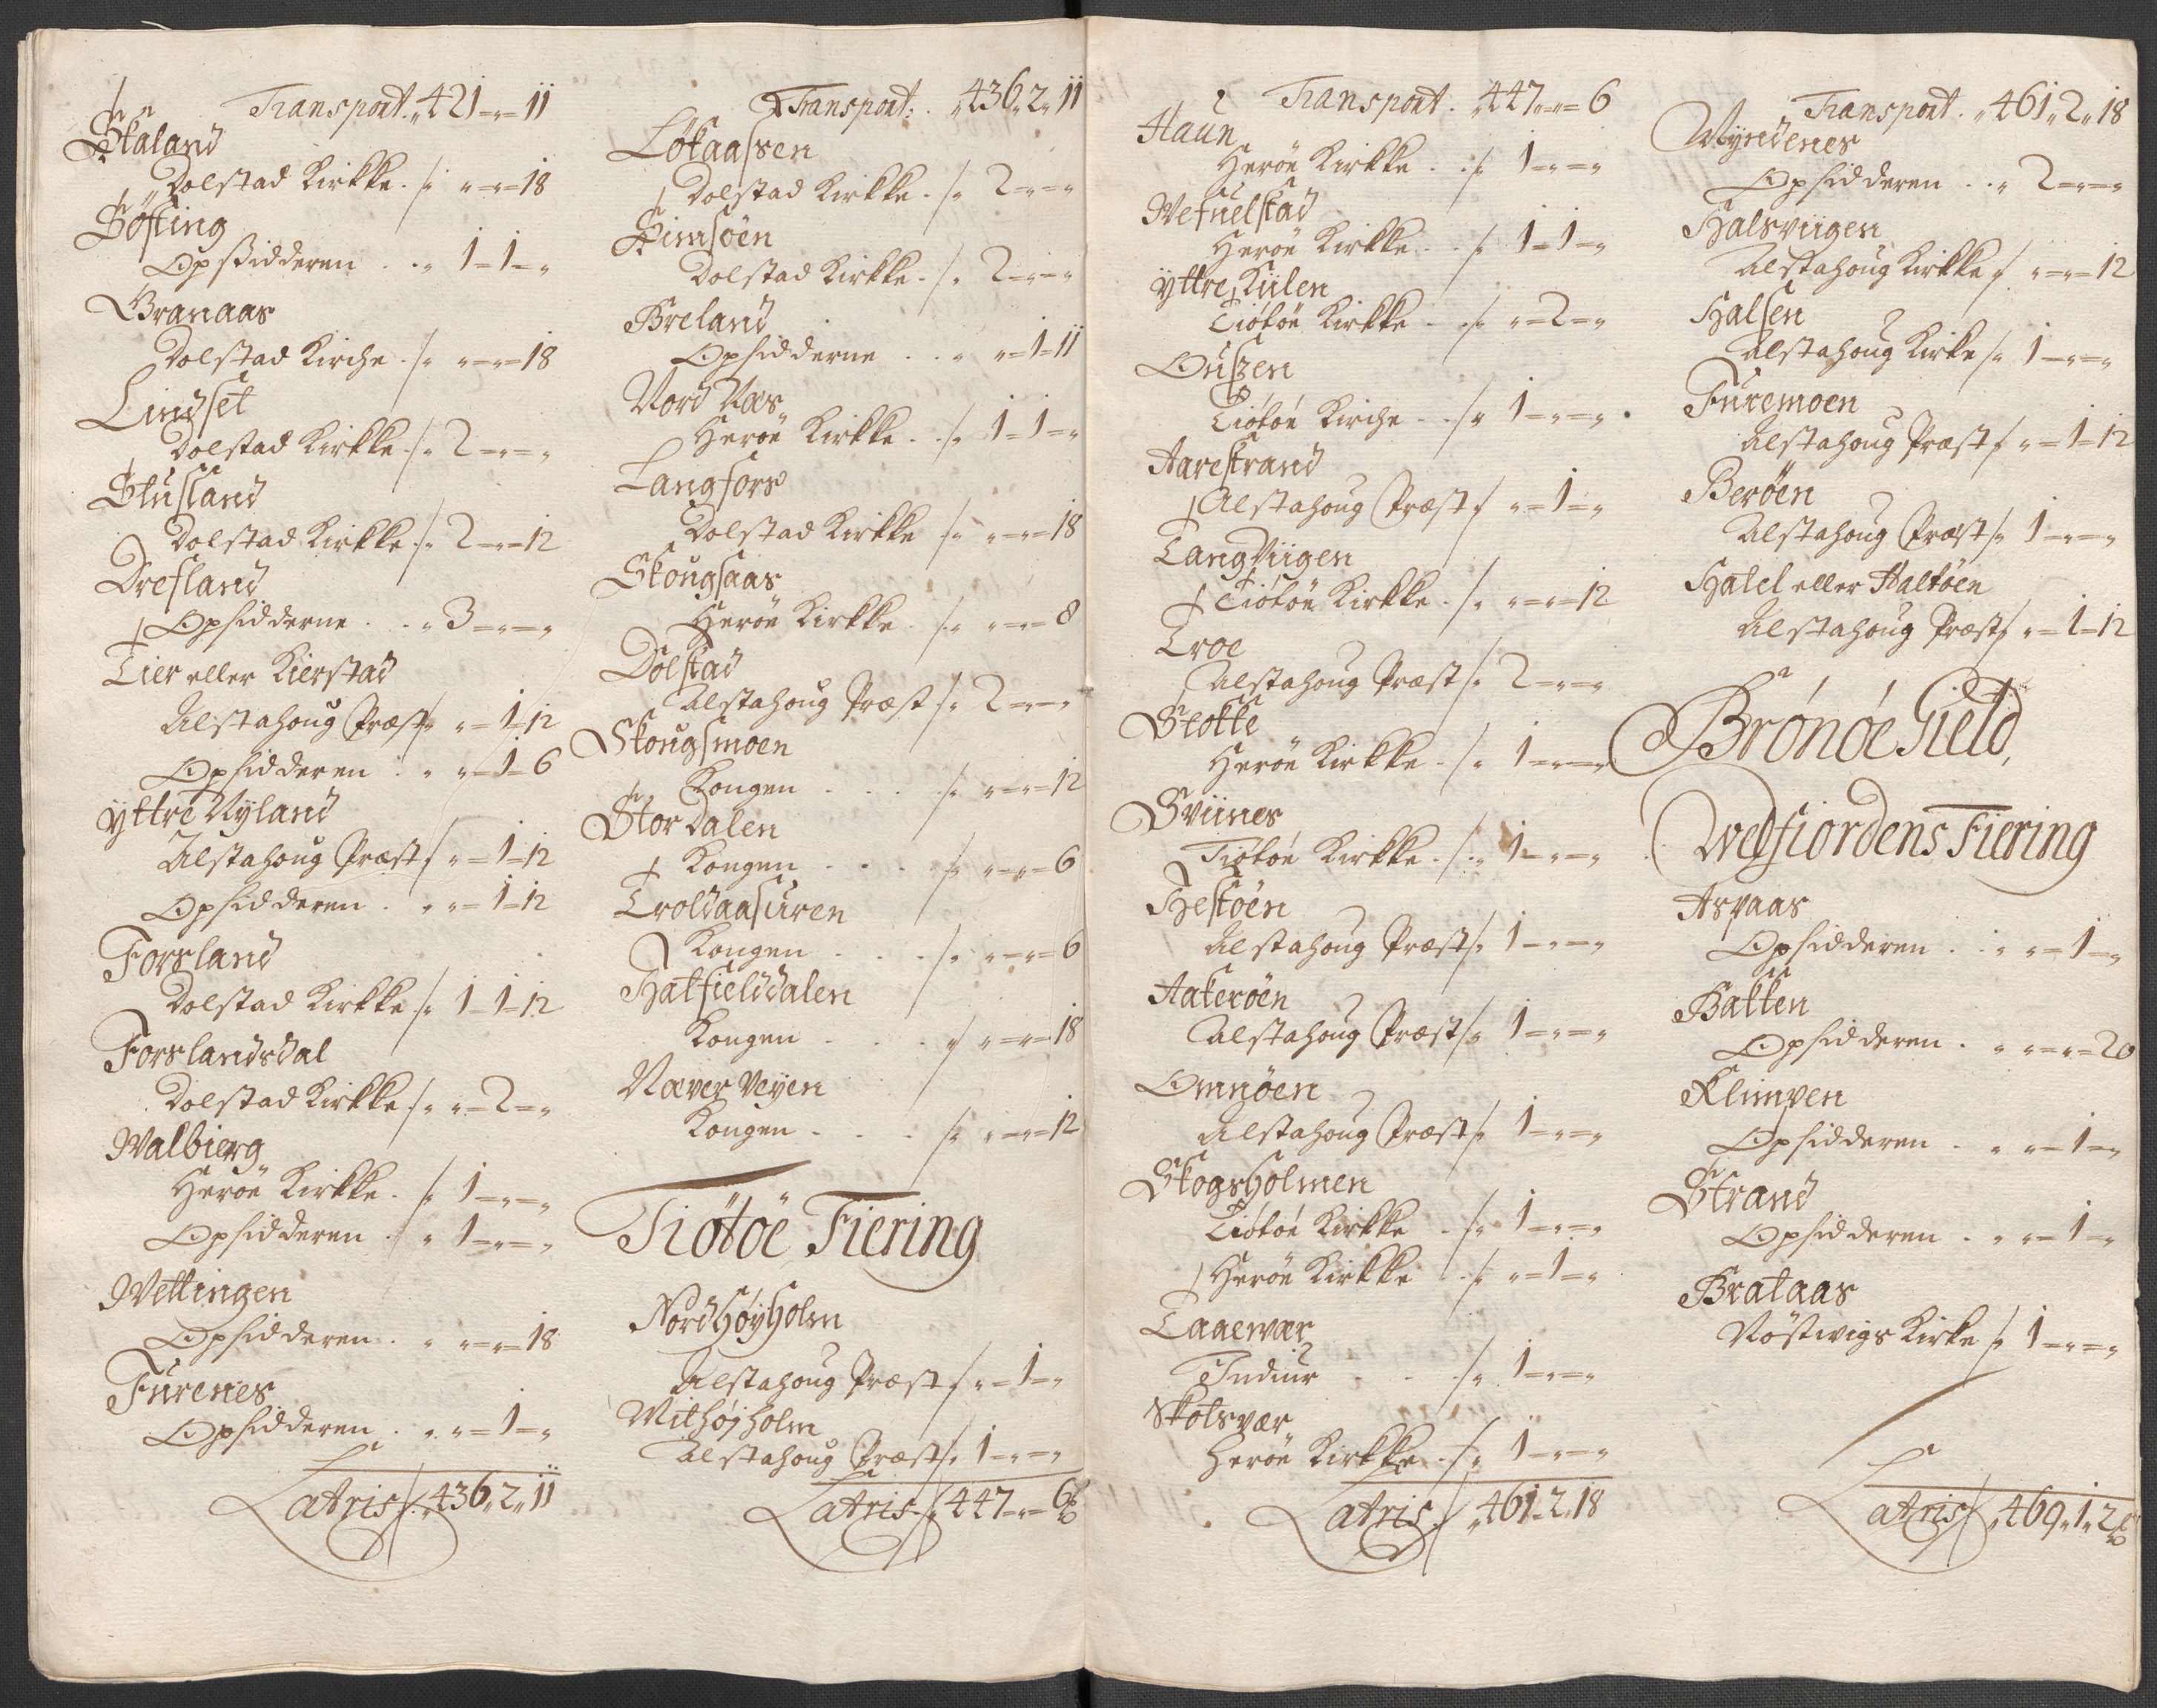 Transport. „ 421 „=„ 11
Staland
Dolstad Kirkke . /. „=„=18
Søfting
Opsidderen . . „ 1=1=„
Granaas
Dolstad Kirche . /. „=„=18
Lindset
Dolstad Kirkke /. 2=„=„
Stusland
Dolstad Kirkke /. 2=„=12
Drefland
Opsidderne . . „ 3=„=„
Tier eller Kierstad
Alstahoug Præst /. „=1=12
Opsidderen . „ „=1=6
Yttre Nyland
Alstahoug Præst /. „=1=12
Opsidderen . „ „=1=12
Forsland
Dolstad Kirkke /. 1=1=12
Forslandsdal
Dolstad Kirkke /. „=2=„
Walbierg
Herøe Kirkke . /. 1=„=„
Opsidderen . „ 1=„=„
Wettingen
Opsidderen . „ „=„=18
Furenes
Opsidderen . „ „=1=„
Latris /. 436„2„11
Transport. . „ 436„2„11
Løkaasen
Dolstad Kirkke . /. 2=„=„
Simsøen
Dolstad Kirkke . /. 2=„=„
Breland
Opsidderne . . „ „=1=11
Nord Næs
Herøe Kirkke . . /. 1=1=„
Langfors
Dolstad Kirkke /. „=„=18
Skougsaas
Herøe Kirkke . /. „=„=8
Dolstad
Alstahoug Præst /. 2=„=„
Skougsmoen
Kongen . . . /. „=„=12
Stordalen
Kongen . . . /. „=„=6
Troldaasuren
Kongen . . . /. „=„=6
Hatfielddalen
Kongen . . . /. „=„=18
Næver Veyen
Kongen . . . /. „=„=12
Tiøtøe Fiering
Nordhøyholm
Alstahoug Præst /. „=1=„
Mithøjholm
Alstahoug Præst /. 1=„=„
Latris /. 447=„=6
Transport . „ 447=„=6
Haun
Herøe Kirkke . . /. 1=„=„
Wefuelstad
Herøe Kirkke . . /. 1=1=„
Yttre Kulen
Tiøtøe Kirkke . . /. „=2=„
Ouszen
Tiøtøe Kirche . . /. 1=„=„
Aarestrand
Alstahoug Præst /. „=1=„
Tangviigen
Tiøtøe Kirkke . /. „=„=12
Troe
Alstahoug Præst /. 2=„=„
Stokke
Herøe Kirkke . /. 1=„=„
Sviines
Tiøtøe Kirkke . /. 1=„=„
Hestøen
Alstahoug Præst /. 1=„=„
Aakerøen
Alstahoug Præst /. 1=„=„
Omnøen
Alstahoug Præst /. 1=„=„
Skogsholmen
Tiøtøe Kirkke . /. 1=„=„
Herøe Kirkke . /. „=1=„
Taaevær
Indiur . . /. 1=„=„
Skotsvær
Herøe Kirkke . /. 1=„=„
Latris /. „ 461=2„18
Transport . „ 461„2„18
Wyndenes
Opsidderen . . „ 2=„=„
Halsviigen
Alstahoug Kirkke /. „=„=12
Halsen
Alstahoug Kirke /. 1=„=„
Furemoen
Alstahoug Præst /. „=1=12
Berøen
Alstahoug Præst /. 1=„=„
Hatel eller Haltøen
Alstahoug Præst /. „=1=12
Brønøe Gield,
Welfiordens Fiering
Aspaas
Opsidderen . . „ „=1=„
Bakken
Opsidderen . „ „=„=20
Klimpen
Opsidderen . „ „=1=„
Strand
Opsidderen . „ „=1=„
Brataas
Nøstwigs Kirke /. 1=„=„
Latris /. „ 469„1„2